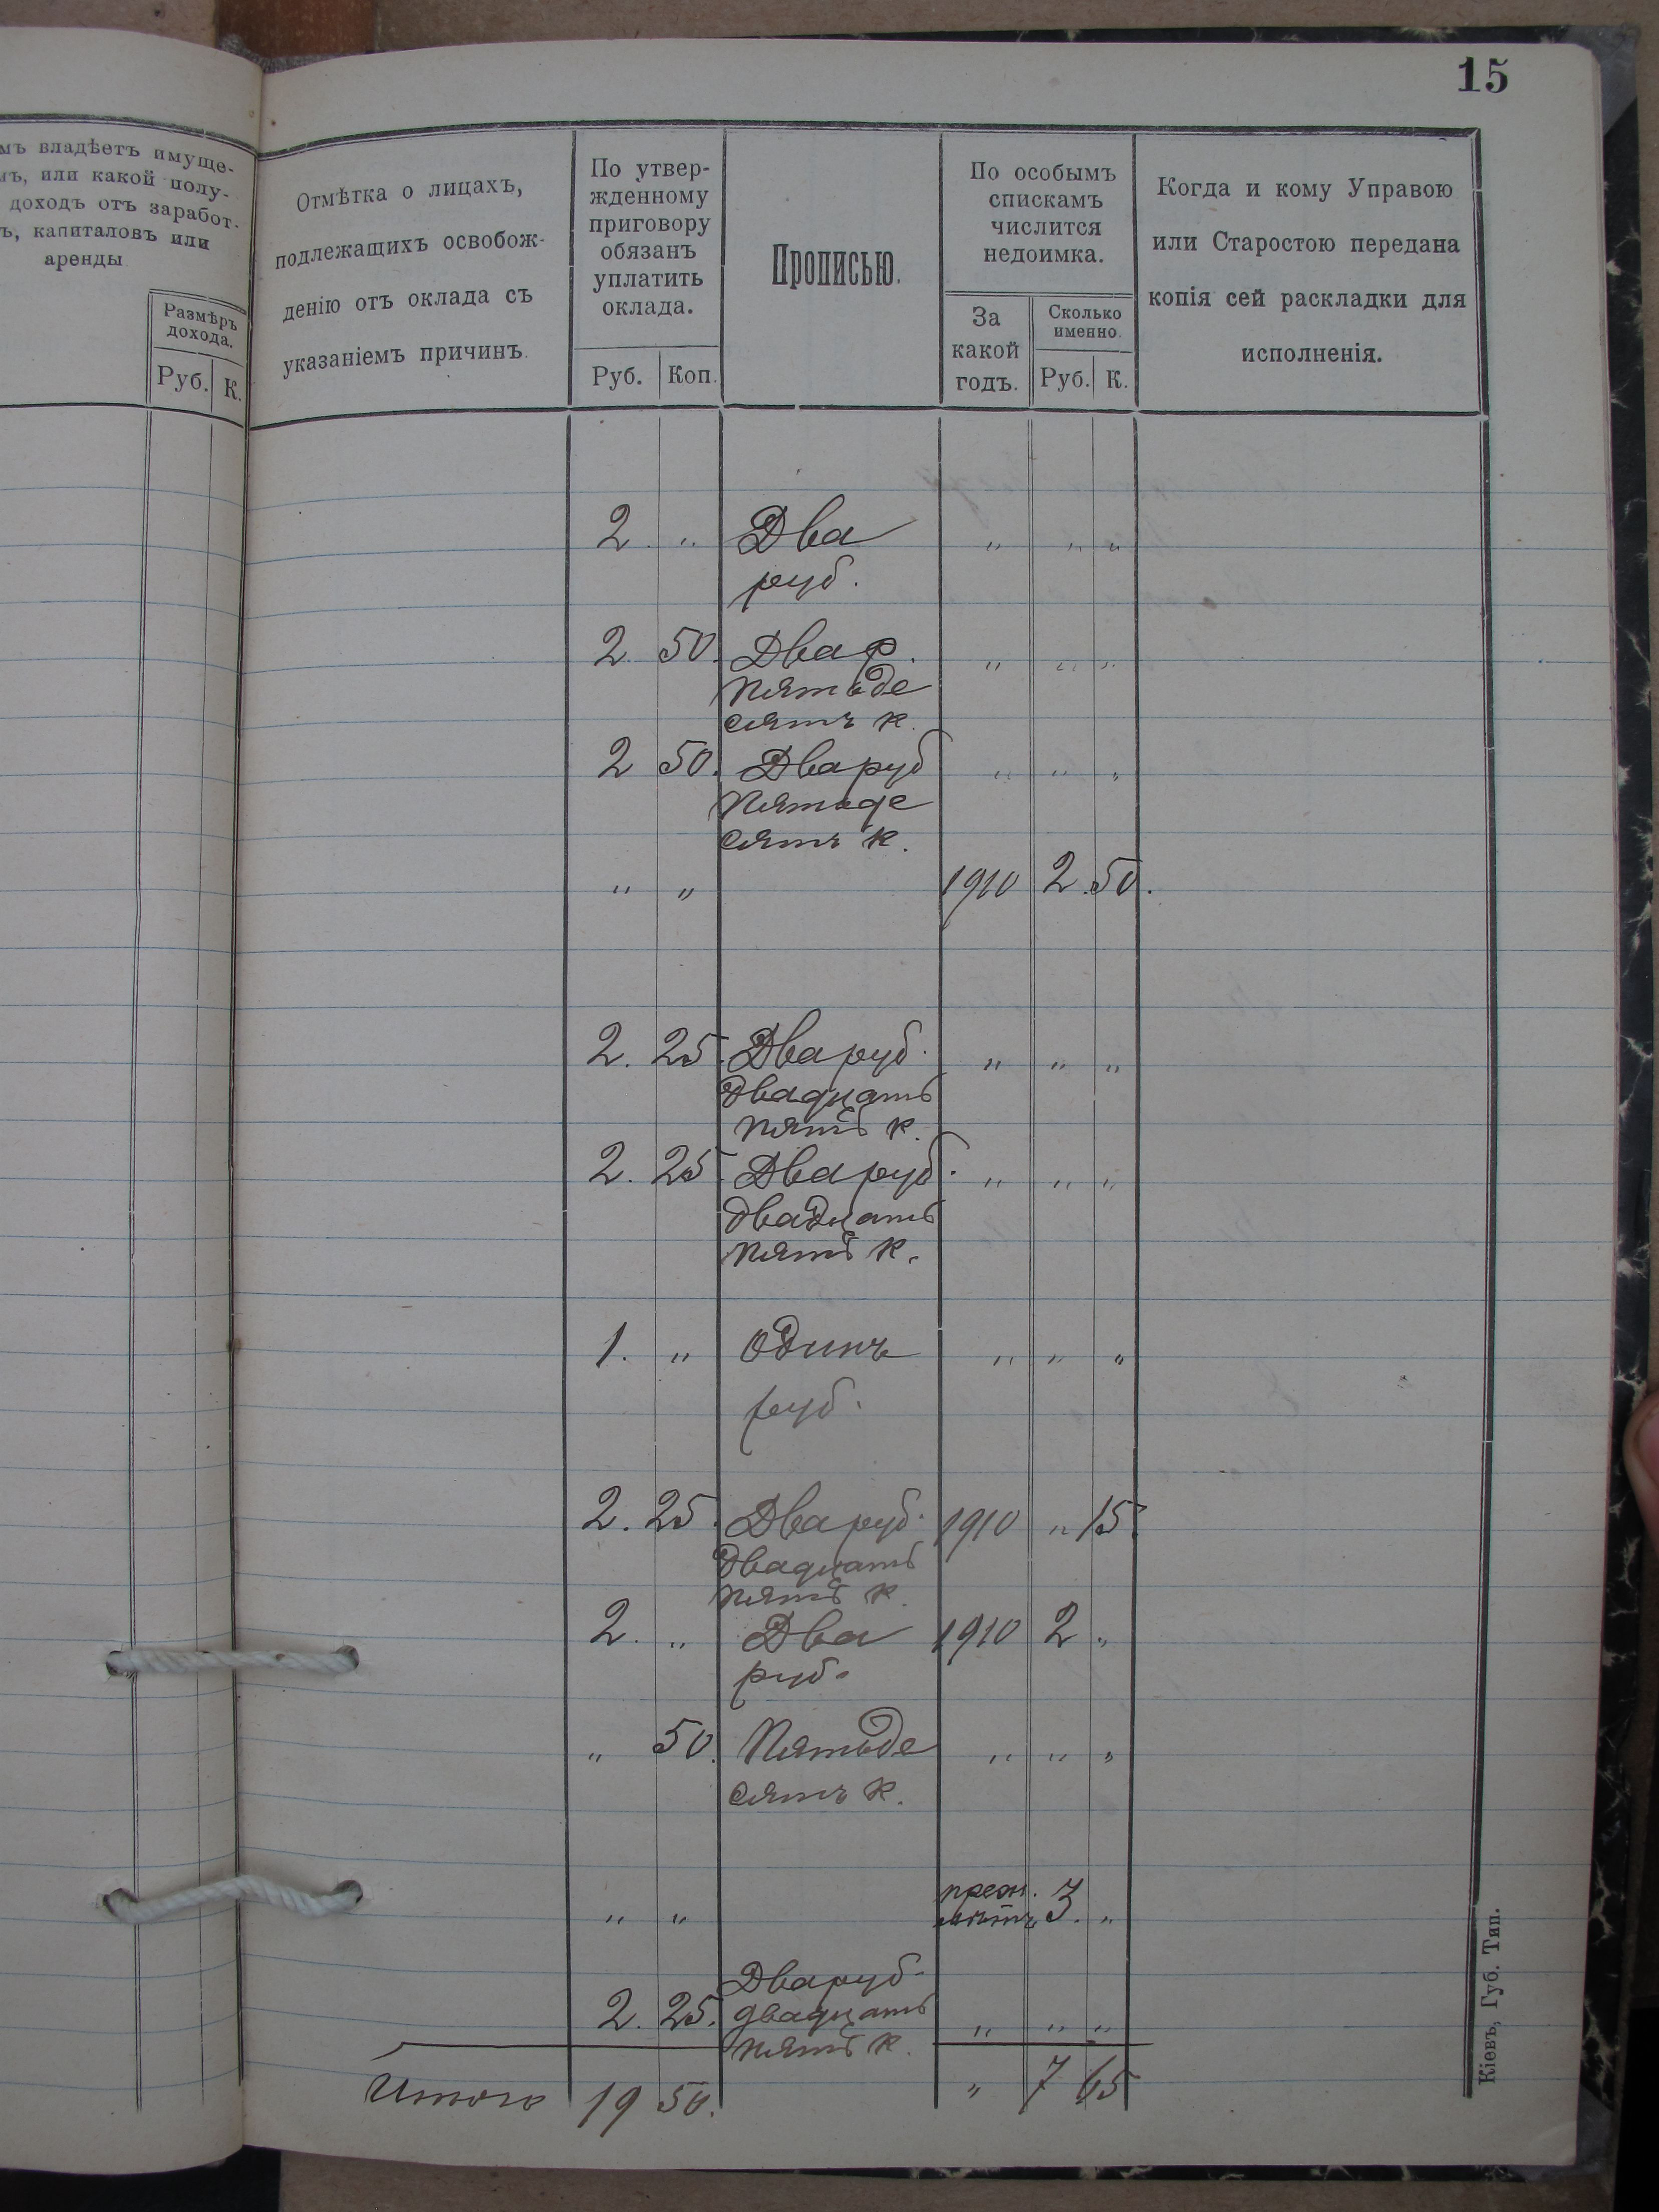 15
мъ владѣетъ имуще-
мъ, или какой полу-
доходъ отъ заработ-
ъ, капиталовъ или
аренды
Размѣръ
дохода.
Руб. К.
Отмѣтка о лицахъ,
подлежащихъ освобож-
денію отъ оклада съ
указаніемъ причинъ.
По утвер-
жденному
приговору
обязанъ
уплатить
оклада.
Руб. Коп.
Прописью.
По особымъ
спискамъ
числится
недоимка.
За
какой
годъ.
Сколько
именно.
Руб. К.
Когда и кому Управою
или Старостою передана
копія сей раскладки для
исполненія.
2 . „ Два „ „ „
руб.
2 50. Два р. „ „ „
пятьде
сятъ к.
2 50. Два руб „ „ „
пятьде
сятъ к.
„ „ 1910 2. 50.
2. 25. Два руб. „ „ „
двадцать
пять к.
2. 25. Два руб. „ „ „
двадцать
пять к.
1. „ Одинъ „ „ „
руб.
2. 25. Два руб. 1910 „ 15.
двадцать
пять к.
2. „ Два 1910 2 „
руб.
„ 50. Пятьде „ „ „
сятъ к.
„ „ 3. „
Два руб.
2. 25. двадцать „ „ „
пять к.
Итого 19 50. „ 7 65
Кіевъ, Губ. Тип.